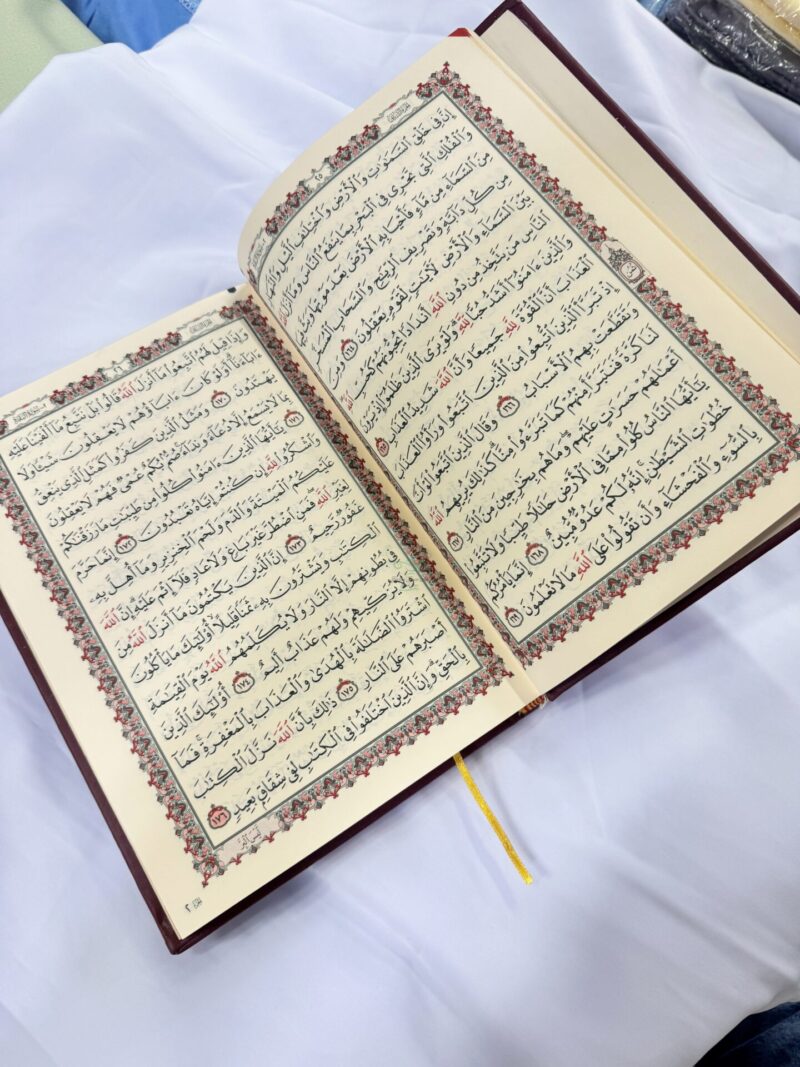 ٢٥
إِنَّ فِي خَلْقِ ٱلسَّمَٰوَٰتِ وَٱلْأَرْضِ وَٱخْتِلَٰفِ ٱلَّيْلِ وَٱلنَّهَارِ
وَٱلْفُلْكِ ٱلَّتِي تَجْرِي فِي ٱلْبَحْرِ بِمَا يَنفَعُ ٱلنَّاسَ وَمَآ أَنزَلَ ٱللَّهُ
مِنَ ٱلسَّمَآءِ مِن مَّآءٍ فَأَحْيَا بِهِ ٱلْأَرْضَ بَعْدَ مَوْتِهَا وَبَثَّ فِيهَا
مِن كُلِّ دَآبَّةٍ وَتَصْرِيفِ ٱلرِّيَٰحِ وَٱلسَّحَابِ ٱلْمُسَخَّرِ
بَيْنَ ٱلسَّمَآءِ وَٱلْأَرْضِ لَءَايَٰتٍ لِّقَوْمٍ يَعْقِلُونَ ١٦٤ وَمِنَ
ٱلنَّاسِ مَن يَتَّخِذُ مِن دُونِ ٱللَّهِ أَندَادًا يُحِبُّونَهُمْ كَحُبِّ ٱللَّهِ
وَٱلَّذِينَ ءَامَنُوٓا۟ أَشَدُّ حُبًّا لِّلَّهِ وَلَوْ يَرَى ٱلَّذِينَ ظَلَمُوٓا۟ إِذْ يَرَوْنَ
ٱلْعَذَابَ أَنَّ ٱلْقُوَّةَ لِلَّهِ جَمِيعًا وَأَنَّ ٱللَّهَ شَدِيدُ ٱلْعَذَابِ ١٦٥
إِذْ تَبَرَّأَ ٱلَّذِينَ ٱتُّبِعُوا۟ مِنَ ٱلَّذِينَ ٱتَّبَعُوا۟ وَرَأَوُا۟ ٱلْعَذَابَ
وَتَقَطَّعَتْ بِهِمُ ٱلْأَسْبَابُ ١٦٦ وَقَالَ ٱلَّذِينَ ٱتَّبَعُوا۟ لَوْ أَنَّ
لَنَا كَرَّةً فَنَتَبَرَّأَ مِنْهُمْ كَمَا تَبَرَّءُوا۟ مِنَّا كَذَٰلِكَ يُرِيهِمُ ٱللَّهُ
أَعْمَٰلَهُمْ حَسَرَٰتٍ عَلَيْهِمْ وَمَا هُم بِخَٰرِجِينَ مِنَ ٱلنَّارِ ١٦٧
يَٰٓأَيُّهَا ٱلنَّاسُ كُلُوا۟ مِمَّا فِي ٱلْأَرْضِ حَلَٰلًا طَيِّبًا وَلَا تَتَّبِعُوا۟
خُطُوَٰتِ ٱلشَّيْطَٰنِ إِنَّهُۥ لَكُمْ عَدُوٌّ مُّبِينٌ ١٦٨ إِنَّمَا يَأْمُرُكُم
بِٱلسُّوٓءِ وَٱلْفَحْشَآءِ وَأَن تَقُولُوا۟ عَلَى ٱللَّهِ مَا لَا تَعْلَمُونَ ١٦٩
٢٦
وَإِذَا قِيلَ لَهُمُ ٱتَّبِعُوا۟ مَآ أَنزَلَ ٱللَّهُ قَالُوا۟ بَلْ نَتَّبِعُ مَآ أَلْفَيْنَا عَلَيْهِ
ءَابَآءَنَآ أَوَلَوْ كَانَ ءَابَآؤُهُمْ لَا يَعْقِلُونَ شَيْـًٔا وَلَا
يَهْتَدُونَ ١٧٠ وَمَثَلُ ٱلَّذِينَ كَفَرُوا۟ كَمَثَلِ ٱلَّذِي يَنْعِقُ
بِمَا لَا يَسْمَعُ إِلَّا دُعَآءً وَنِدَآءً صُمٌّ بُكْمٌ عُمْيٌ فَهُمْ لَا يَعْقِلُونَ
١٧١ يَٰٓأَيُّهَا ٱلَّذِينَ ءَامَنُوا۟ كُلُوا۟ مِن طَيِّبَٰتِ مَا رَزَقْنَٰكُمْ
وَٱشْكُرُوا۟ لِلَّهِ إِن كُنتُمْ إِيَّاهُ تَعْبُدُونَ ١٧٢ إِنَّمَا حَرَّمَ
عَلَيْكُمُ ٱلْمَيْتَةَ وَٱلدَّمَ وَلَحْمَ ٱلْخِنزِيرِ وَمَآ أُهِلَّ بِهِۦ
لِغَيْرِ ٱللَّهِ فَمَنِ ٱضْطُرَّ غَيْرَ بَاغٍ وَلَا عَادٍ فَلَآ إِثْمَ عَلَيْهِ إِنَّ ٱللَّهَ
غَفُورٌ رَّحِيمٌ ١٧٣ إِنَّ ٱلَّذِينَ يَكْتُمُونَ مَآ أَنزَلَ ٱللَّهُ مِنَ
ٱلْكِتَٰبِ وَيَشْتَرُونَ بِهِۦ ثَمَنًا قَلِيلًا أُو۟لَٰٓئِكَ مَا يَأْكُلُونَ
فِي بُطُونِهِمْ إِلَّا ٱلنَّارَ وَلَا يُكَلِّمُهُمُ ٱللَّهُ يَوْمَ ٱلْقِيَٰمَةِ
وَلَا يُزَكِّيهِمْ وَلَهُمْ عَذَابٌ أَلِيمٌ ١٧٤ أُو۟لَٰٓئِكَ ٱلَّذِينَ
ٱشْتَرَوُا۟ ٱلضَّلَٰلَةَ بِٱلْهُدَىٰ وَٱلْعَذَابَ بِٱلْمَغْفِرَةِ فَمَآ
أَصْبَرَهُمْ عَلَى ٱلنَّارِ ١٧٥ ذَٰلِكَ بِأَنَّ ٱللَّهَ نَزَّلَ ٱلْكِتَٰبَ
بِٱلْحَقِّ وَإِنَّ ٱلَّذِينَ ٱخْتَلَفُوا۟ فِي ٱلْكِتَٰبِ لَفِي شِقَاقٍ بَعِيدٍ ١٧٦
لَّيْسَ ٱلْبِرَّ
جزء ٢